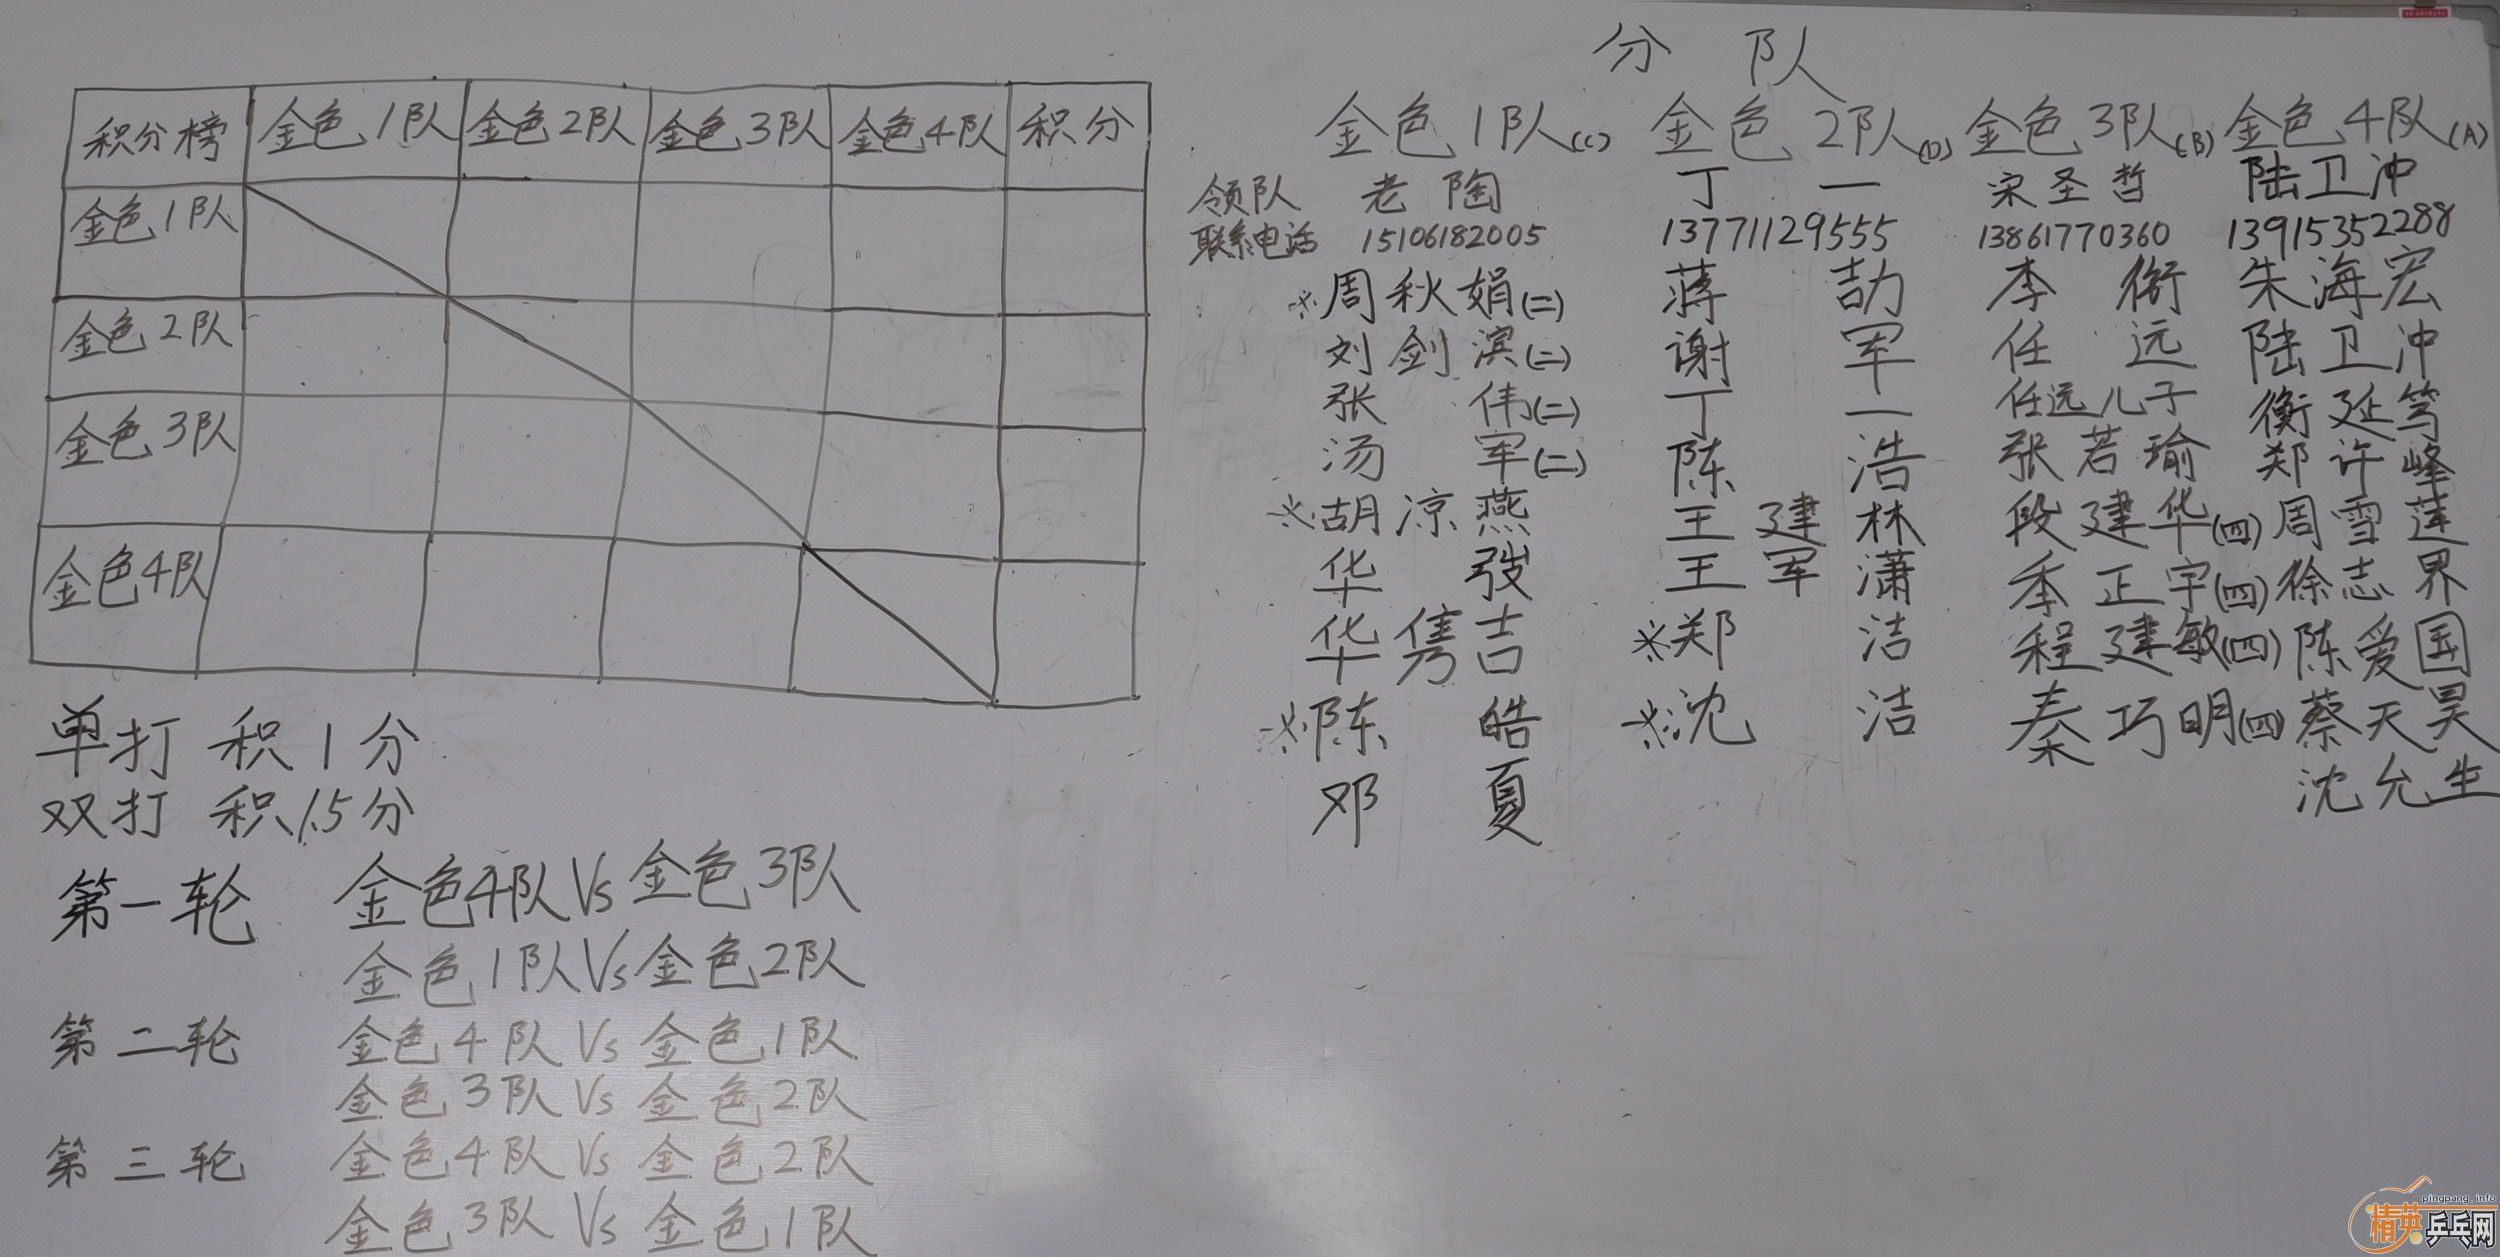 积分榜 金色1队 金色2队 金色3队 金色4队 积分
金色1队
金色2队
金色3队
金色4队
单打 积1分
双打 积1.5分
第一轮 金色4队 Vs 金色3队
金色1队 Vs 金色2队
第二轮 金色4队 Vs 金色1队
金色3队 Vs 金色2队
第三轮 金色4队 Vs 金色2队
金色3队 Vs 金色1队
分队
金色1队(C) 金色2队(D) 金色3队(B) 金色4队(A)
领队 老陶 丁一 宋圣哲 陆卫冲
联系电话 15106182005 13771129555 13861770360 13915352288
※周秋娟(二) 蒋劼 李衡 朱海宏
刘剑滨(二) 谢军 任远 陆卫冲
张伟(二) 丁一 任远儿子 衡延笃
汤军(二) 陈浩 张若瑜 郑许峰
※胡凉燕 王建林 段建华(四) 周雪莲
华弢 王军潇 季正宇(四) 徐志界
华隽吉 ※郑洁 程建敏(四) 陈爱国
※陈皓 ※沈洁 秦巧明(四) 蔡天昊
邓夏 沈允生
pingpang.info
精英乒乓网